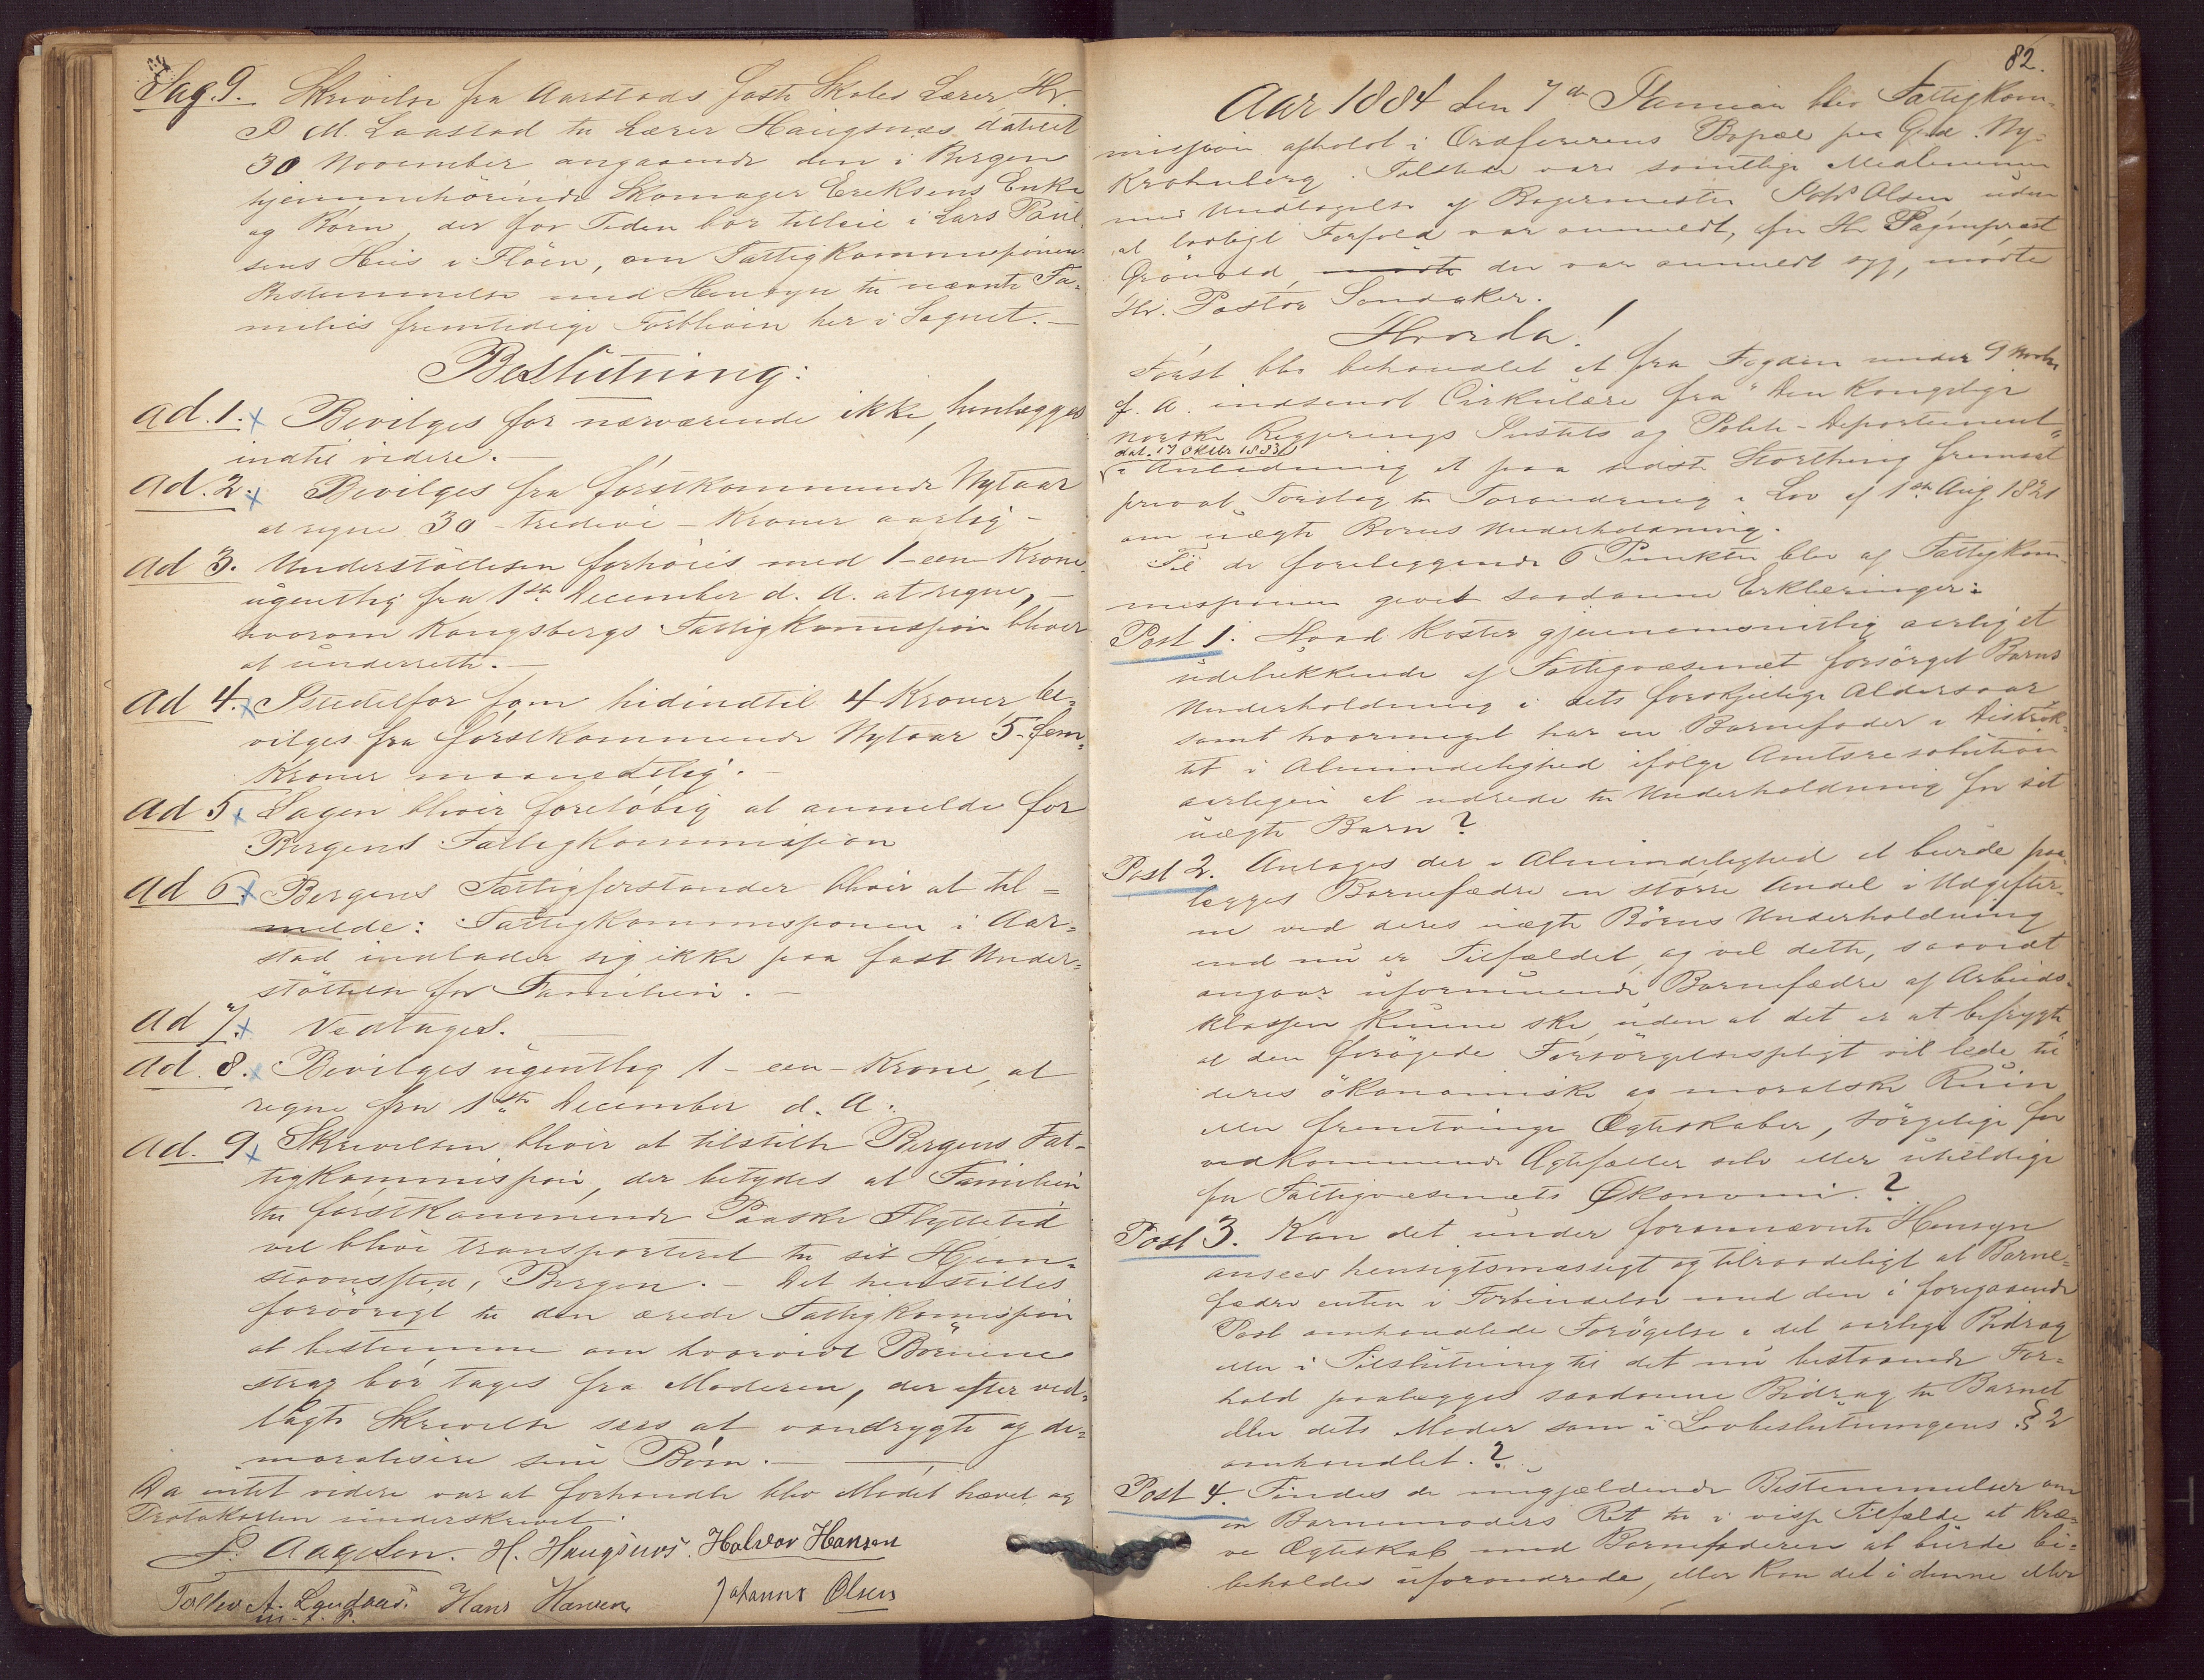 Sag. 9. Skrivelse fra Aarstads faste Skoles Lærer Hr.
P. M. Laastad til Lærer Haugsnæs dateret
30 November angaaende den i Bergen
hjemmehörende Skomager Ereksens Enke
og Börn, der for Tiden bor tilleie i Lars Paul-
sens Huus i Flöen, om Fattigkommissionens
Bestemmelse med Hensyn til nævnte Fa-
milies fremtidige Forbliven her i Sognet.—
Beslutning:
ad. 1. Bevilges for nærværende ikke, henlægges
indtil videre.—
ad. 2. Bevilges fra förstkommende Nytaar
at regne 30 - tredive - Kroner aarlig -
ad 3. Understöttelsen forhöies med 1 - een Krone
ugentlig fra 1ste December d. A. at regne, —
hvorom Kongsbergs Fattigkommission bliver
at underrette.—
ad 4. Istedetfor som hidindtil 4 Kroner be-
vilges fra förstkommende Nytaar 5 - fem-
Kroner maanedtlig.—
ad 5. Sagen bliver foreløbig at anmelde for
Bergens Fattigkommission
ad 6. Bergens Fattigforstander bliver at til=
melde: Fattigkommissionen i Aar=
stad indlader sig ikke paa fast Under=
stöttelse for Familien.—
ad 7. Vedtages.—
ad. 8. Bevilges ugentlig 1 - een - Krone, at
regne fra 1ste December d. A.
ad. 9. Skrivelsen bliver at tilstille Bergens Fat-
tigkommission, der betydes at Familien
til förstkommende Paaske Flyttetid
vil blive transporteret til sit Hjem=
stavnssted, Bergen.— Det henstilles
forövrigt til den ærede Fattigkommission
at bestemme om hvorvidt Börnene
strax bör tages fra Moderen, der efter ved-
lagte Skrivelse sees at vandrygte og de=
moralisere sine Börn.—
Da intet videre var at forhandle blev Mödet hævet og
Protokollen underskrevet.
P. Aagesen. H. Haugsnæs. Halvor Hansen
Tollev A. Landaas. Hans Hansen Johannes Olsen
m. f. P.
82.
Aar 1884 den 7de Januar blev Fattigkom-
mission afholdt i Ordförerens Bopæl paa Grd. Ny-
Krohnborg. Tilstede vare samtlige Medlemmer
med Undtagelse af Bagermester Olsen uden
at lovligt Forfald var anmeldt, for Hr. Sogneprest
Grönvold, mödte der var anmeldt syg, mödte
Hr. Pastor Sandaker.
Hvorda!
Först blev behandlet et fra Fogden under 9 Novbr
f. A. indsendt Cirkulære fra "Den Kongelige
norske Regjerings Justits og Politi-Departement"
dat. 17 Oktbr 1883
i Anledning et paa sidste Storthing fremsat
privat Forslag til Forandring i Lov af 1ste Aug 1821
om uægte Börns Underholdning.
Til de foreliggende 6 Punkter blev af Fattigkom-
missionen givet saadanne Erklæringer:
Post 1. Hvad koster gjennemsnitlig aarlig et
udelukkende af Fattigvæsenet forsörget Barns
Underholdning i dets forskjellige Aldersaar
samt hvormeget har en Barnefader i Distrik-
tet i Almindelighed ifølge Amtsresolution
aarligen at udrede til Underholdning for sit
uægte Barn?
Post 2. Antages der i Almindelighed at burde paa-
lægges Barnefædre en större Andel i Udgifter-
ne ved deres uægte Börns Underholdning
end nu er Tilfældet, og vil dette, saavidt
angaar uformuende Barnefædre af Arbeids-
klassen kunne ske, uden at det er at befrygte
at den forögede Forsörgelsespligt vil lede til
deres ökonomiske og moralske Ruin
eller fremtvinge Ægteskaber, sörgelige for
vedkommende Ægtefæller selv eller uheldige
for Fattigvæsenets Økonomi.?
Post 3. Kan det under forannævnte Hensyn
ansees hensigtsmæssigt og tilraadeligt at Barne-
fædre enten i Forbindelse med den i foregaaende
Post omhandlede Forögelse i det aarlige Bidrag
eller i Tilslutning til det nu bestaaende For=
hold paalægges saadanne Bidrag til Barnet
eller dets Moder som i Lovbeslutningens § 2
omhandlet.?
Post 4. Findes de nugjældende Bestemmelser om
en Barnemoders Ret til i visse Tilfælde at kræ-
ve Ægteskab med Barnefaderen at burde bi=
beholdes uforandrede, eller kan det i denne eller